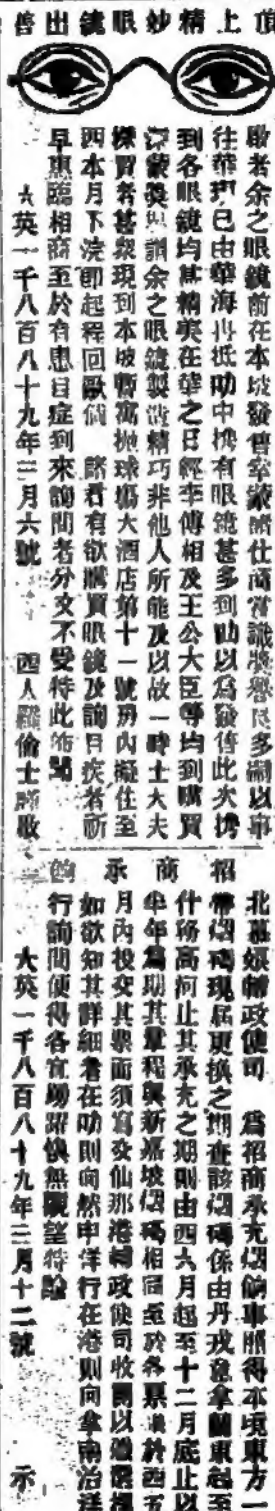 頂上精妙眼鏡出售
啟者余之眼鏡前在本坡發售蒙仕商賞識將譽多嗣以事
往華已由華海抵叻中有眼鏡甚多到叻以為發售此次携
到各眼鏡均甚精美在華之日經李傅相及王公大臣等均到購買
深蒙奬謂余之眼鏡製造精巧非他人所能及以故一時士大夫
採買者甚衆現到本坡暫寓拋球塲大酒店第十一號房內擬住至
西本月下浣卽起程回歐倘 諸君有欲購買眼鏡及詢目疾者祈
早惠臨相商至於有患目症到來詢問者分文不受特此佈聞
大英一千八百八十九年三月六號 西人羅倫士謹啟
招商承
北慕娘輔政使司 為招商承充烟事照得本東方一
帶烟碼現屆更換之期查該烟碼係由丹戎意拿蘭東起至
什高止其承充之期則由西六月起至十二月底止以
半年為期其章程與新嘉坡烟碼相同至於各票於西五
月內投交其票面須寫交仙那港輔政使司收以選擇
如欲知其詳細者在叻則向然申洋行在港則向拿南治
行詢問便得各宜踴躍快無觀望特諭
大英一千八百八十九年三月十二號 示